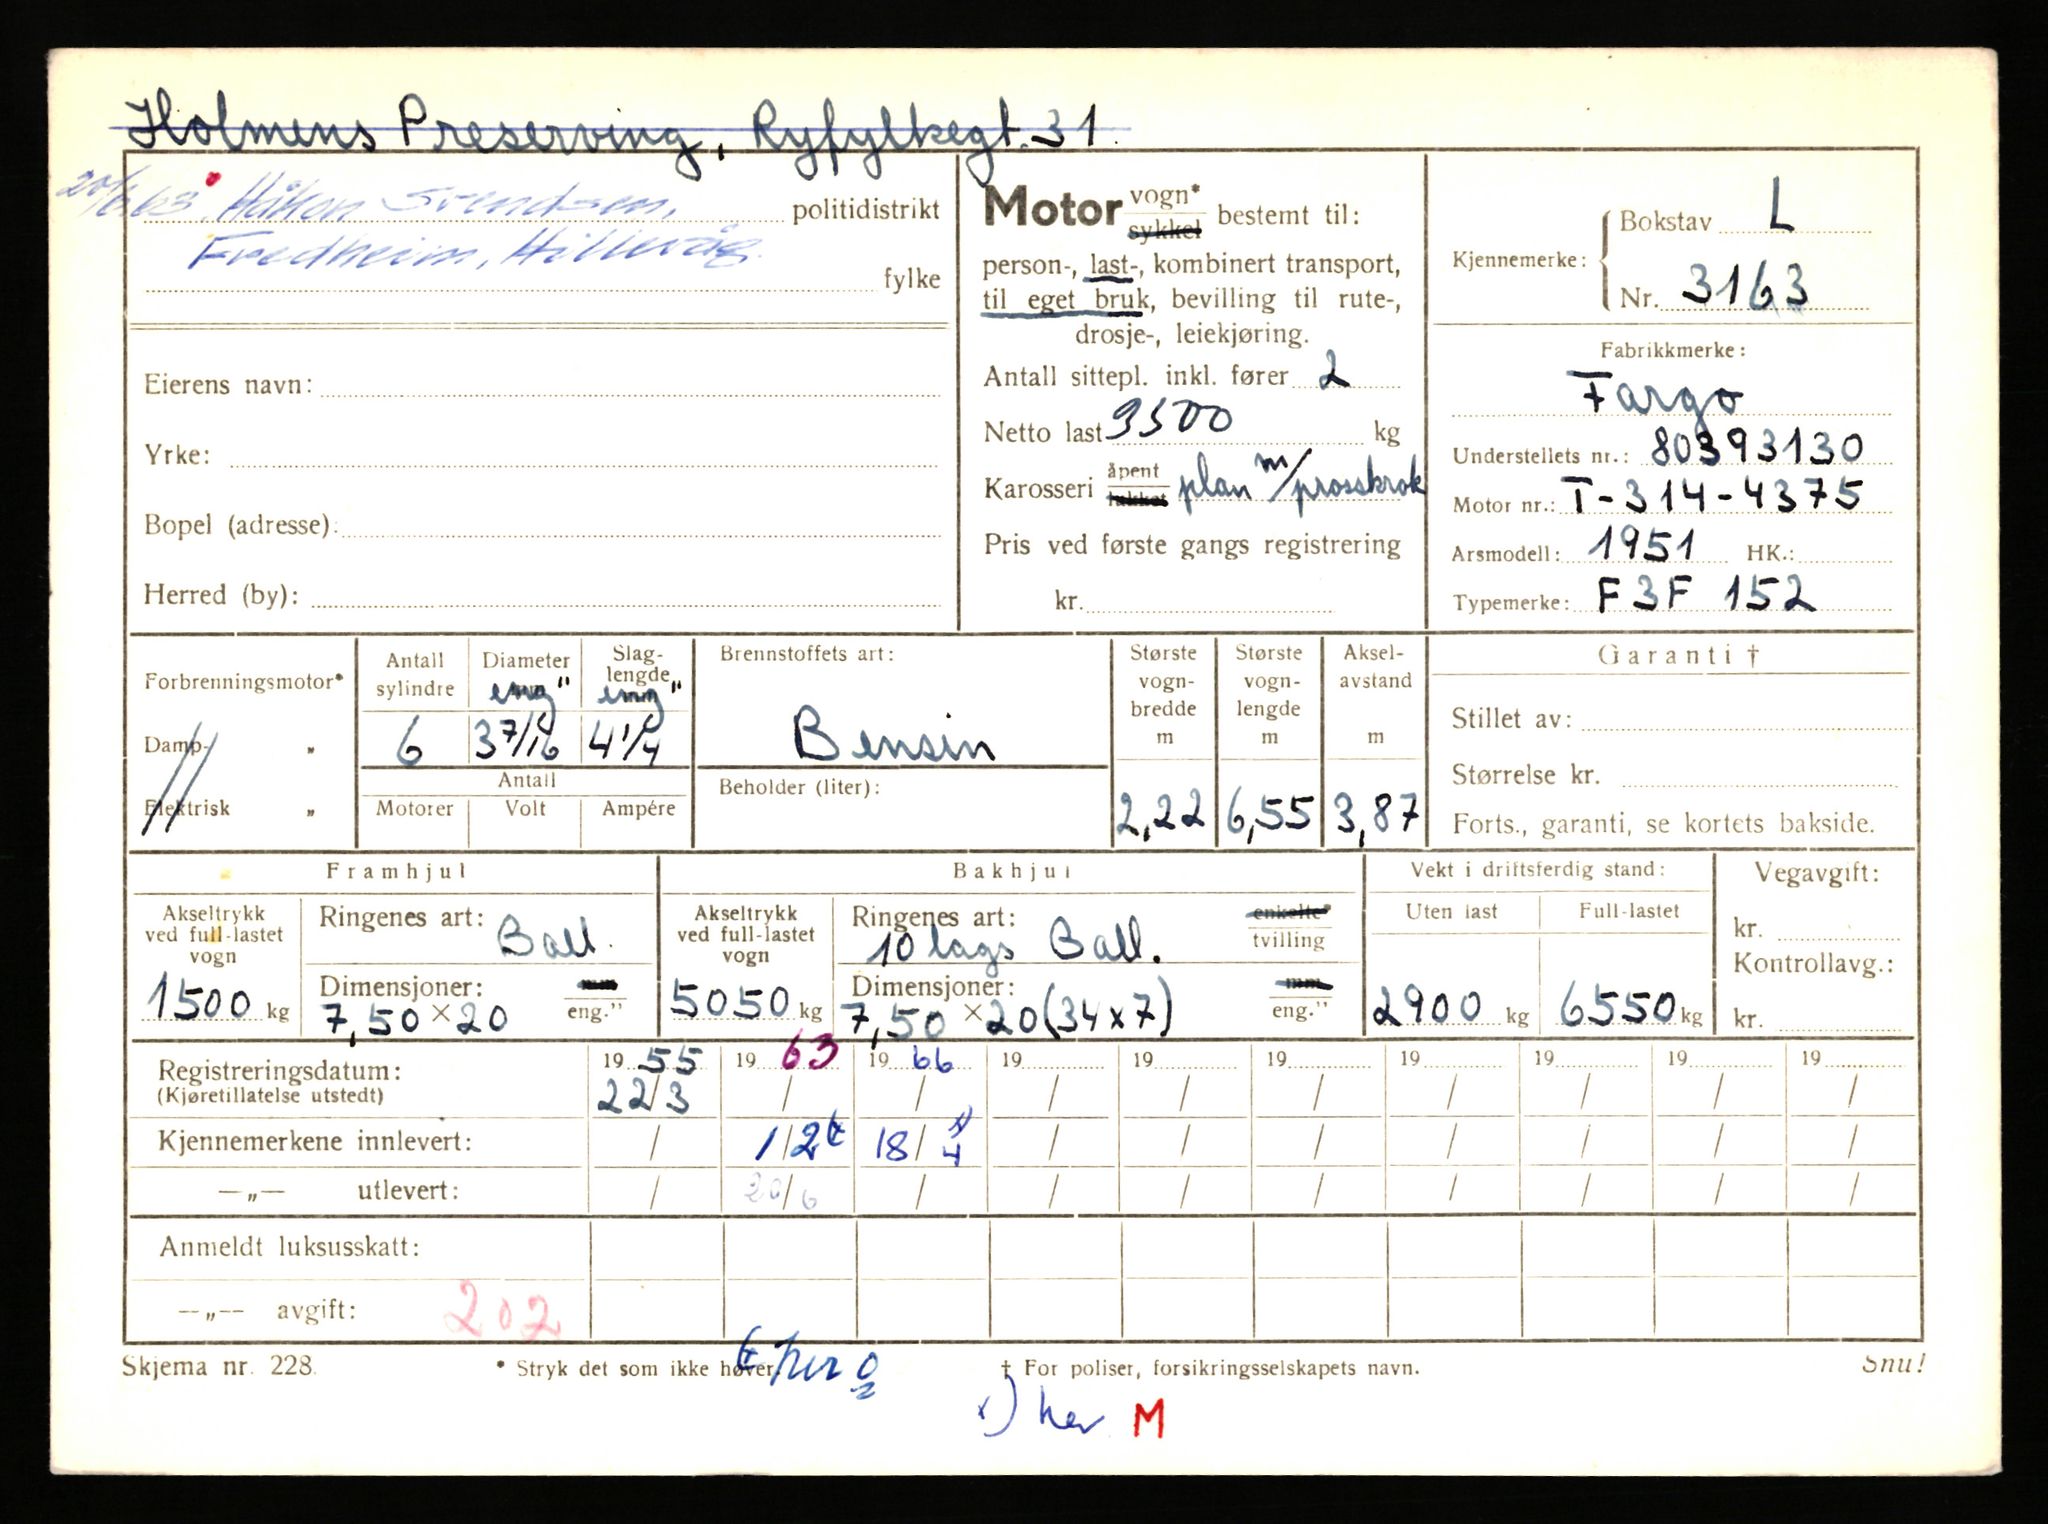 Holmens Preserving, Ryfylkegt. 31.
20/6 63. Håkon Svendsen, politidistrikt
Fredheim, Hillevåg. fylke
Eierens navn:
Yrke:
Bopel (adresse):
Herred (by):
Motor vogn* sykkel bestemt til:
person-, last-, kombinert transport,
til eget bruk, bevilling til rute-,
drosje-, leiekjøring.
Antall sittepl. inkl. fører 2
Netto last 3500 kg
Karosseri åpent lukket plan m/prosskrok
Pris ved første gangs registrering
kr.
Kjennemerke: Bokstav L
Nr. 3163
Fabrikkmerke:
Fargo
Understellets nr.: 80393130
Motor nr.: T-314-4375
Arsmodell: 1951 HK.:
Typemerke: F3F 152
Forbrenningsmotor*
Damp- „
Elektrisk „
Antall sylindre 6
Diameter mm eng" 3 7/16
Slaglengde mm eng" 4 1/4
Antall
Motorer Volt Ampére
Brennstoffets art:
Bensin
Beholder (liter):
Største vogn-bredde m 2,22
Største vogn-lengde m 6,55
Aksel-avstand m 3,87
Garanti †
Stillet av:
Størrelse kr.
Forts., garanti, se kortets bakside.
Framhjul
Akseltrykk ved full-lastet vogn 1500 kg
Ringenes art: Ball.
Dimensjoner: mm eng."
7,50 × 20
Bakhjul
Akseltrykk ved full-lastet vogn 5050 kg
Ringenes art: enkelte* tvilling
10 lags Ball.
Dimensjoner: mm eng."
7,50 × 20 (34 x 7)
Vekt i driftsferdig stand:
Uten last Full-lastet
2900 kg 6550 kg
Vegavgift:
kr.
Kontrollavg.:
kr.
Registreringsdatum: 19 55 19 63 19 66 19 19 19 19 19 19 19
(Kjøretillatelse utstedt) 22/3 / / / / / / / / /
Kjennemerkene innlevert: / 1/2 18/4 x) / / / / / / /
—„— utlevert: / 20/6 / / / / / / / /
Anmeldt luksusskatt:
—„— avgift: 202
Skjema nr. 228. * Stryk det som ikke høver. † For poliser, forsikringsselskapets navn. Snu!
x) her M